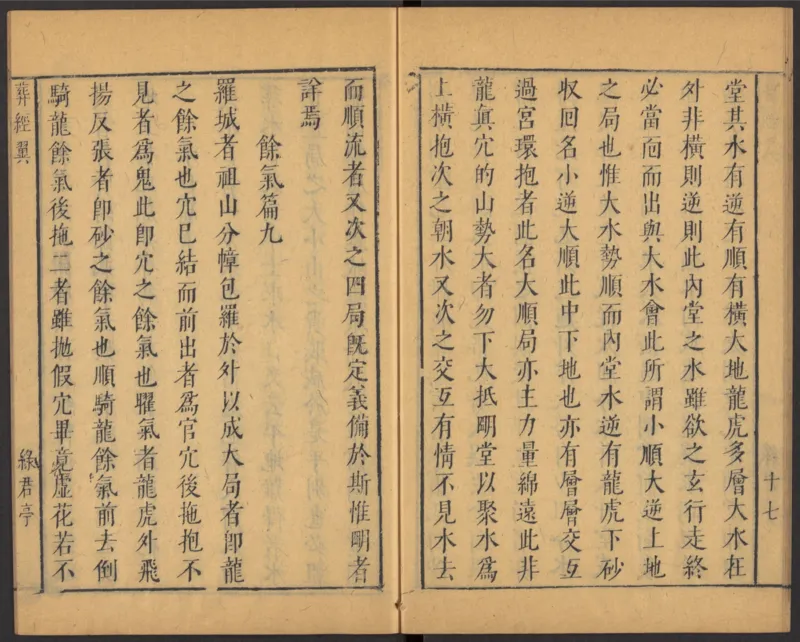 十七
堂其水有逆有順有橫大地龍虎多層大水在
外非橫則逆則此內堂之水雖欲之玄行走終
必當囘而出與大水會此所謂小順大逆上地
之局也惟大水勢順而內堂水逆有龍虎下砂
収囘名小逆大順此中下地也亦有層層交互
過宮環抱者此名大順局亦主力量綿遠此非
龍眞穴的山勢大者勿下大抵明堂以聚水爲
上橫抱次之朝水又次之交互有情不見水去
而順流者又次之四局旣定義備於斯惟明者
詳焉
餘氣篇九
羅城者祖山分幛包羅於外以成大局者卽龍
之餘氣也穴已結而前出者爲官穴後拖抱不
見者爲鬼此卽穴之餘氣也曜氣者龍虎外飛
揚反張者卽砂之餘氣也順騎龍餘氣前去倒
騎龍餘氣後拖二者雖拋假穴畢竟虛花若不
葬經翼
綠君亭